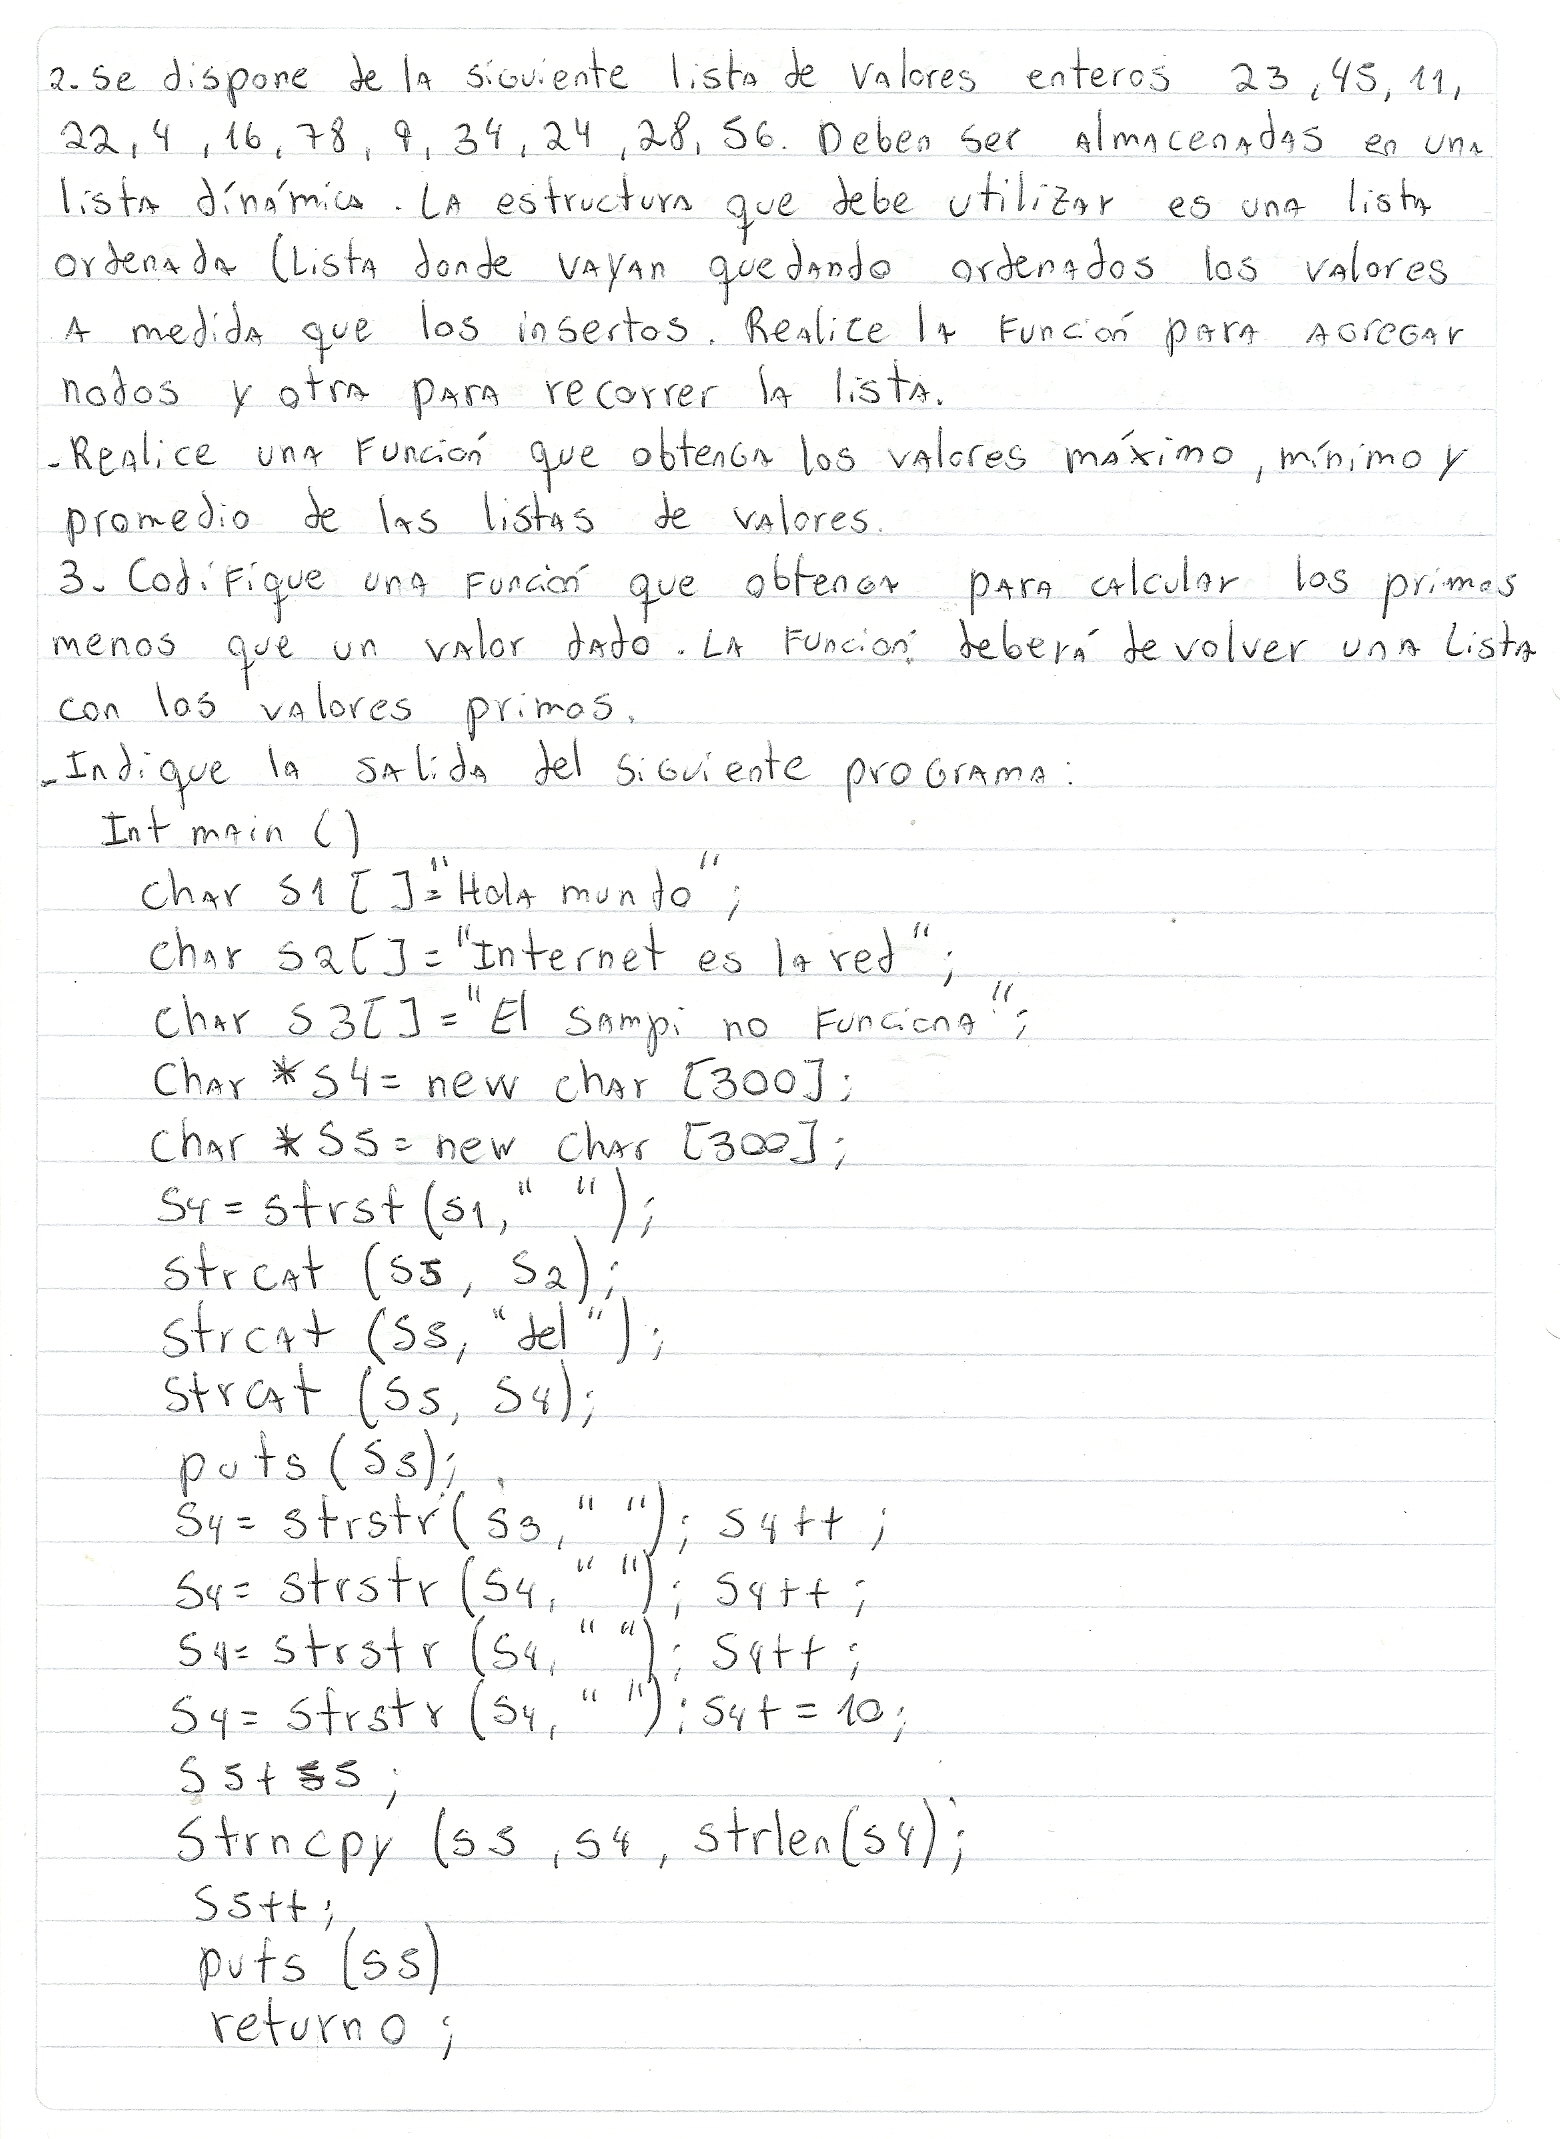 2. Se dispone de la siguiente lista de valores enteros 23, 45, 11,
22, 4, 16, 78, 9, 34, 24, 28, 56. Deben ser almacenadas en una
lista dínámica. La estructura que debe utilizar es una lista
ordenada (Lista donde vayan quedando ordenados los valores
a medida que los insertos. Realice la función para agregar
nodos y otra para recorrer la lista.
- Realice una función que obtenga los valores máximo, mínimo y
promedio de las listas de valores.
3. Codifique una función que obtenga para calcular los primos
menos que un valor dado. La función deberá devolver una Lista
con los valores primos.
- Indique la salida del siguiente programa:
Int main ()
char S1 [ ]="Hola mundo";
char S2[ ]="Internet es la red";
char S3[ ]="El sampi no funciona";
Char *S4= new char [300];
Char *S5= new char [300];
S4= strst(s1," ");
strcat (S5, S2);
strcat (S5, "del");
strcat (S5, S4);
puts (S5);
S4= strstr( S3," "); S4++;
S4= strstr (S4," "); S4++;
S4= strstr (S4," "); S4++;
S4= strstr (S4," "); S4+=10;
S5+=5;
Strncpy (S5, S4, strlen(S4);
S5++;
puts (S5)
return 0;